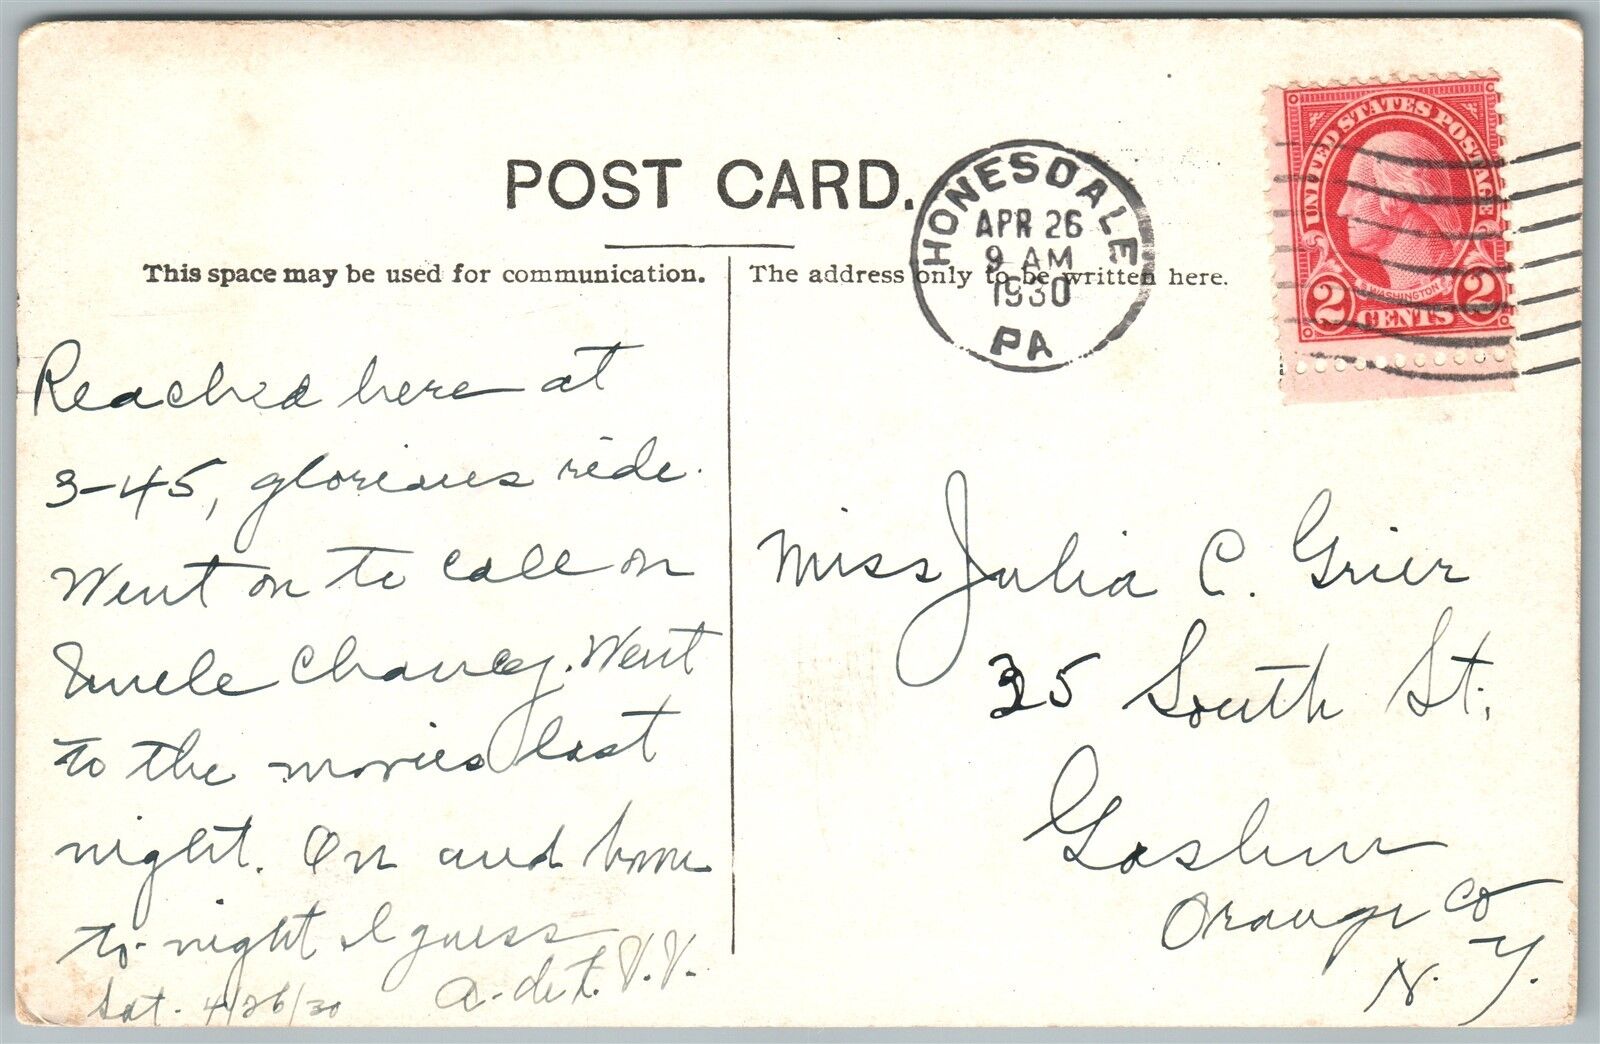 POST CARD.
This space may be used for communication.
The address only to be written here.
HONESDALE
APR 26
9 AM
1930
PA
UNITED STATES POSTAGE
WASHINGTON
2 CENTS 2
Reached here at
3-45, glorious ride.
Went on to call on
Uncle Chauncey. Went
to the movies last
night. On and home
to-night I guess
Sat. 4/26/30
Miss Julia C. Grier
35 South St.
Goshen
Orange Co
N. Y.